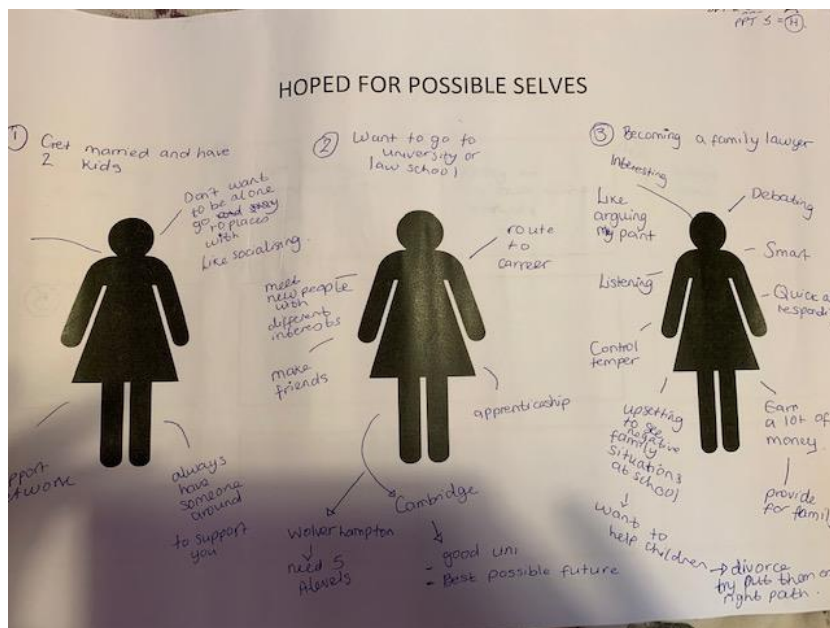 PPT 5 = H
HOPED FOR POSSIBLE SELVES
1 Get married and have
2 kids
Don't want
to be alone
go
to places
with
Like socialising.
pport
twork
always
have
someone
around
to support
you
2 Want to go to
university or
law school
route
to
career
meet
new people
with
different
interests
make
friends
apprenticeship
Wolverhampton
need 5
Alevels
Cambridge
- good uni
- Best possible future
3 Becoming a family lawyer
Interesting
Debating
Like
arguing
my point
Smart
Listening
Quick a
respondi
Control
temper
Earn
a lot of
money.
provide
for famil
upsetting
to see
negative
family
situations
at school
want to
help children
→ divorce
try put them on
right path.